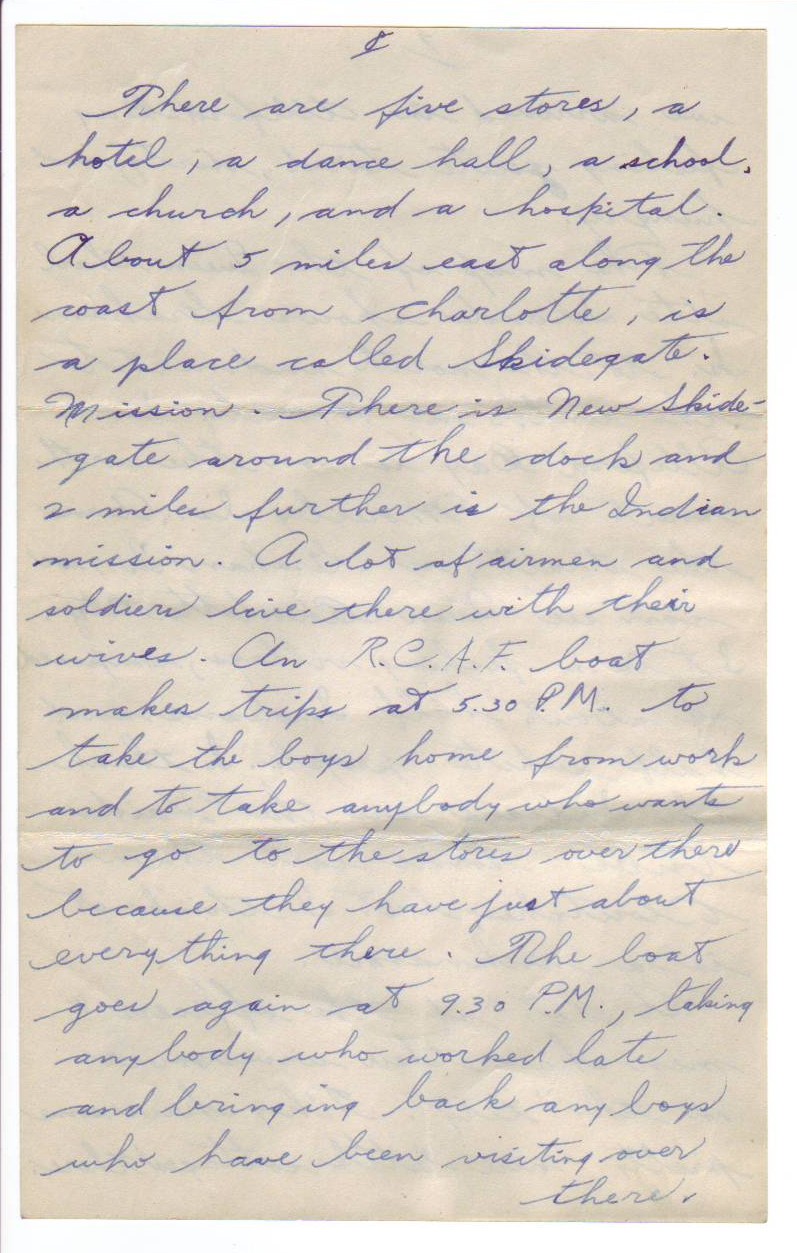 There are five stores, a
hotel, a dance hall, a school,
a church, and a hospital.
About 5 miles east along the
coast from Charlotte, is
a place called Skidegate.
Mission. There is New Skide-
gate around the dock and
2 miles further is the Indian
mission. A lot of airmen and
soldiers live there with their
wives. An R.C.A.F. boat
makes trips at 5.30 P.M. to
take the boys home from work
and to take anybody who wants
to go to the stores over there
because they have just about
everything there. The boat
goes again at 9.30 P.M., taking
anybody who worked late
and bringing back any boys
who have been visiting over
there.